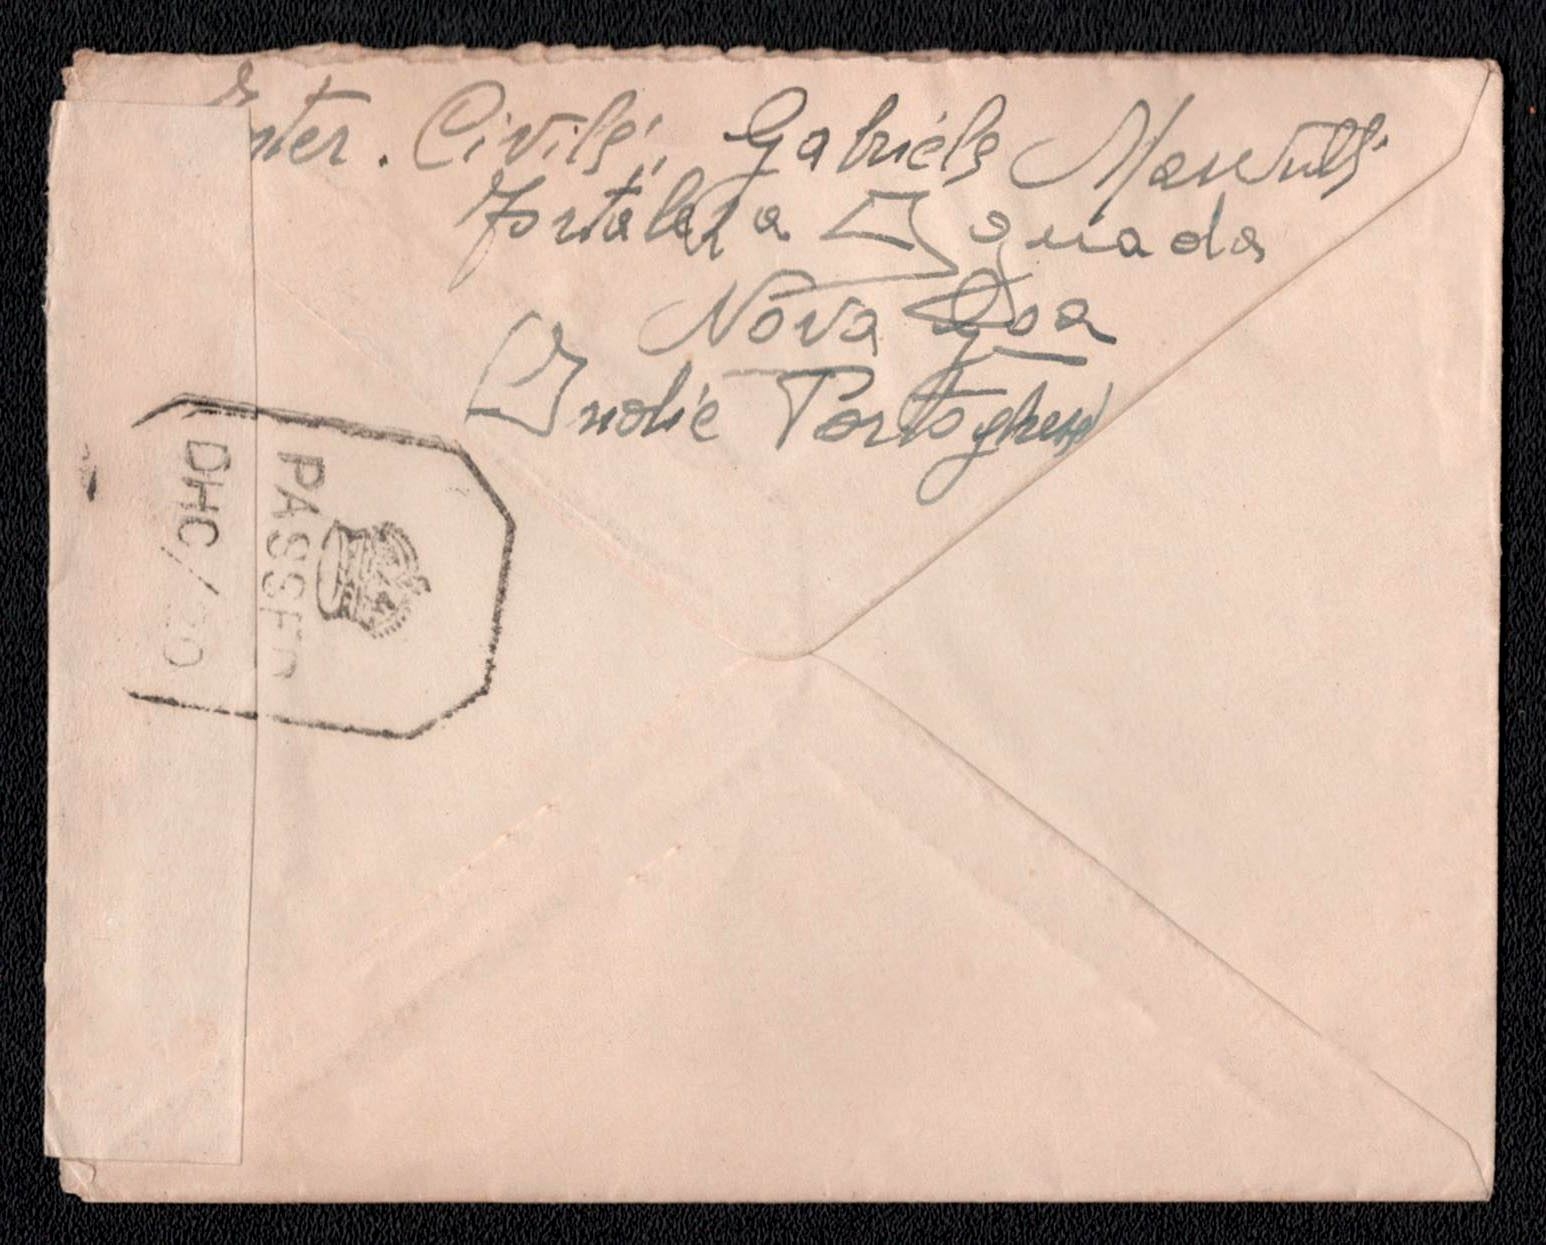 Inter. Civile, Gabriele
Fortaleza Aguada
Nova Goa
Indie Portoghesi
PASSED
DHC/